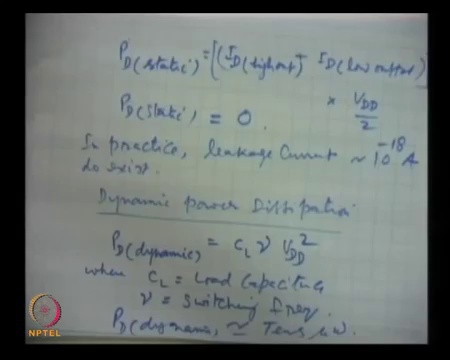 P_D(static) = [(I_D(high out) + I_D(low output)]
× V_DD/2
P_D(static) = 0.
In practice, leakage current ~ 10^-18 A
do exist.
Dynamic power Dissipation
P_D(dynamic) = C_L ν V_DD^2
where C_L = Load Capacitance
ν = switching freq.
P_D(dynamic) ≃ Tens μW.
NPTEL